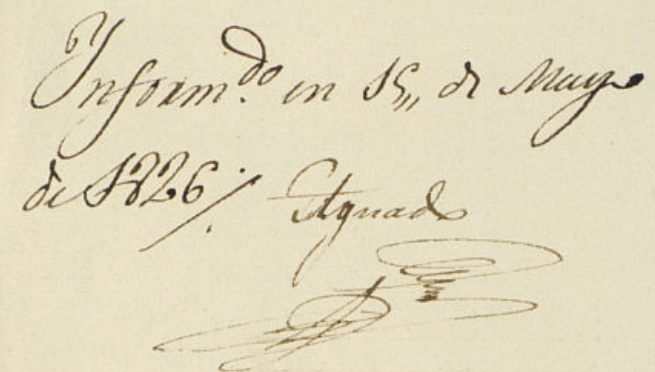 Informdo. en 15,, de Mayo
de 1826 ./. Aguado